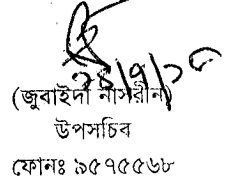 ২৪/৭/২০
(জুবাইদা নাসরীন)
উপসচিব
ফোনঃ ৯৫৭৫৫৬৮